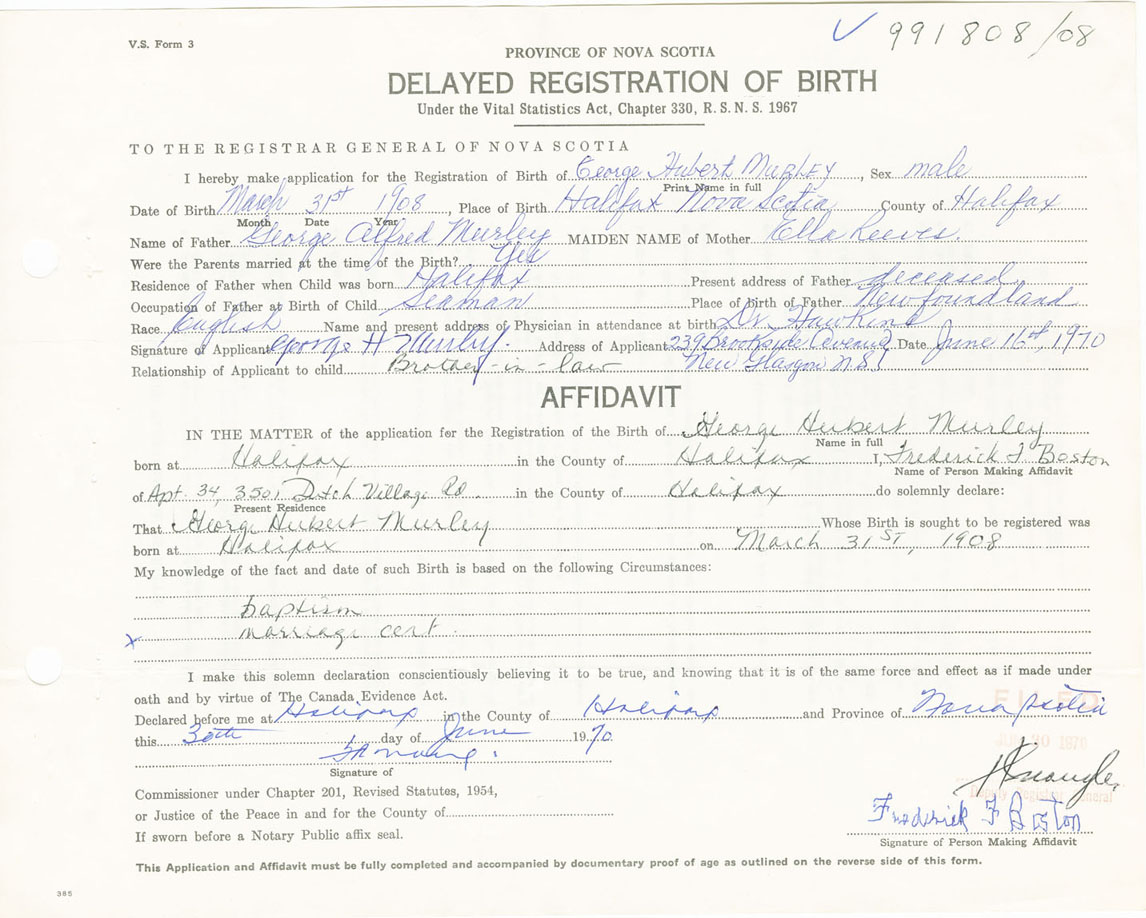 V.S. Form 3
991808/08
PROVINCE OF NOVA SCOTIA
DELAYED REGISTRATION OF BIRTH
Under the Vital Statistics Act, Chapter 330, R.S.N.S. 1967
TO THE REGISTRAR GENERAL OF NOVA SCOTIA
I hereby make application for the Registration of Birth of George Hubert Murley, Sex male
Print Name in full
Date of Birth March 31st 1908, Place of Birth Halifax Nova Scotia County of Halifax
Month Date Year
Name of Father George Alfred Murley MAIDEN NAME of Mother Ella Reeves.
Were the Parents married at the time of the Birth? Yes
Residence of Father when Child was born Halifax Present address of Father deceased
Occupation of Father at Birth of Child Seaman Place of birth of Father Newfoundland
Race English Name and present address of Physician in attendance at birth Dr. Hawkins
Signature of Applicant George H Murley. Address of Applicant 239 Brookside Avenue Date June 16th, 1970
Relationship of Applicant to child Brother-in-law New Glasgow N.S.
AFFIDAVIT
IN THE MATTER of the application for the Registration of the Birth of George Hubert Murley
Name in full
born at Halifax in the County of Halifax I, Frederick F Boston
Name of Person Making Affidavit
of Apt. 34, 3501 Dutch Village Rd. in the County of Halifax do solemnly declare:
Present Residence
That George Hubert Murley Whose Birth is sought to be registered was
born at Halifax on March 31ST, 1908
My knowledge of the fact and date of such Birth is based on the following Circumstances:
baptism
x marriage cert.
I make this solemn declaration conscientiously believing it to be true, and knowing that it is of the same force and effect as if made under
oath and by virtue of The Canada Evidence Act.
FILED
Declared before me at Halifax in the County of Halifax and Province of Nova Scotia
this 30th day of June 1970.
JUN 30 1970
Signature of
Deputy Registrar General
Commissioner under Chapter 201, Revised Statutes, 1954,
or Justice of the Peace in and for the County of
Frederick F Boston
If sworn before a Notary Public affix seal.
Signature of Person Making Affidavit
This Application and Affidavit must be fully completed and accompanied by documentary proof of age as outlined on the reverse side of this form.
385